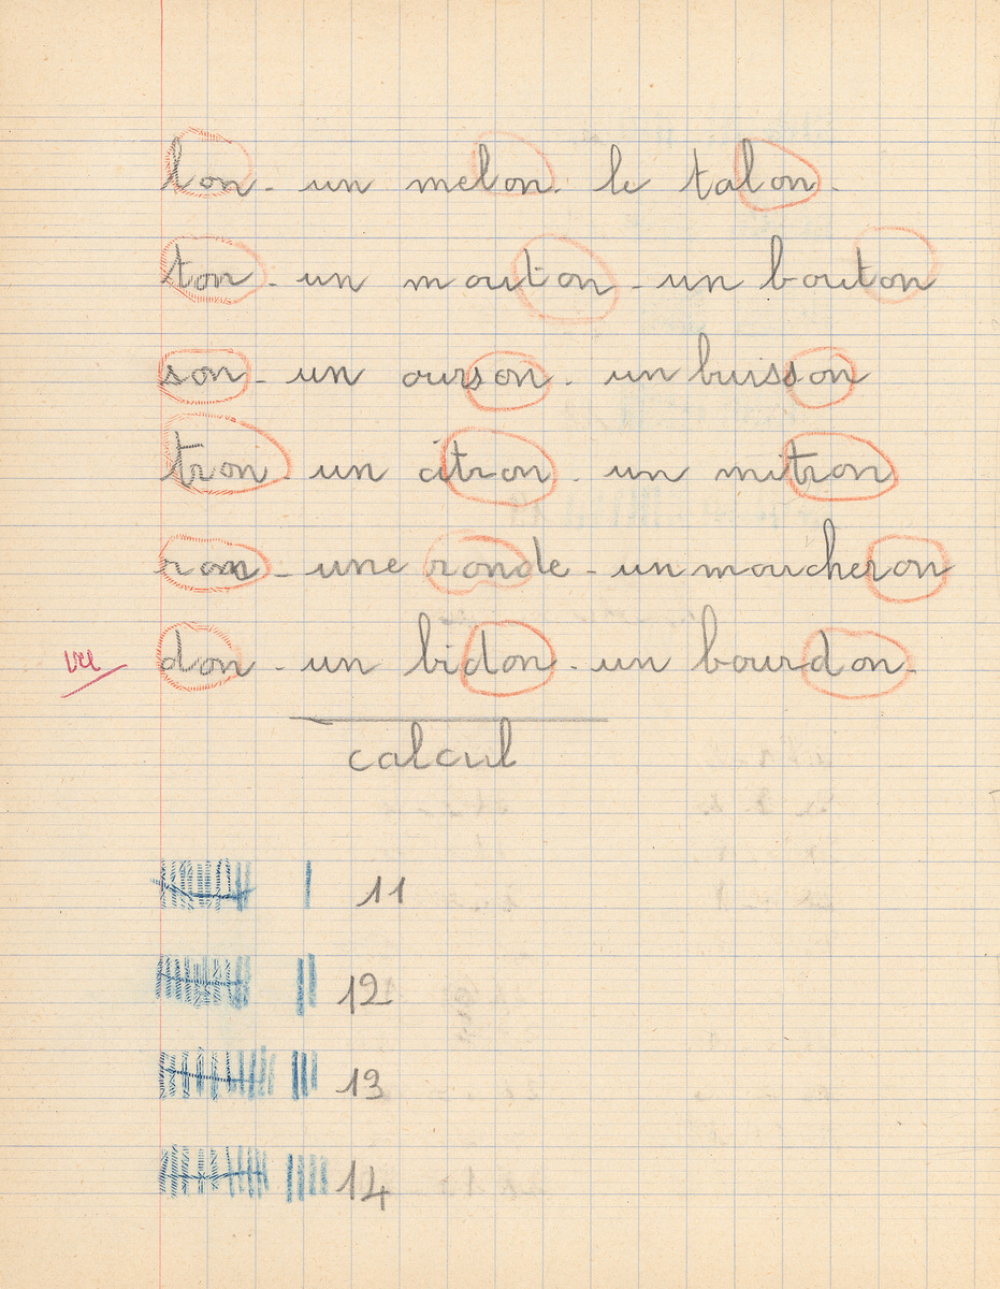 lon - un melon. le talon.
ton - un mouton - un bouton
son - un ourson. un buisson
tron - un citron. un mitron
ron - une ronde - un moucheron
vu don - un bidon - un bourdon.
calcul
11
12
13
14